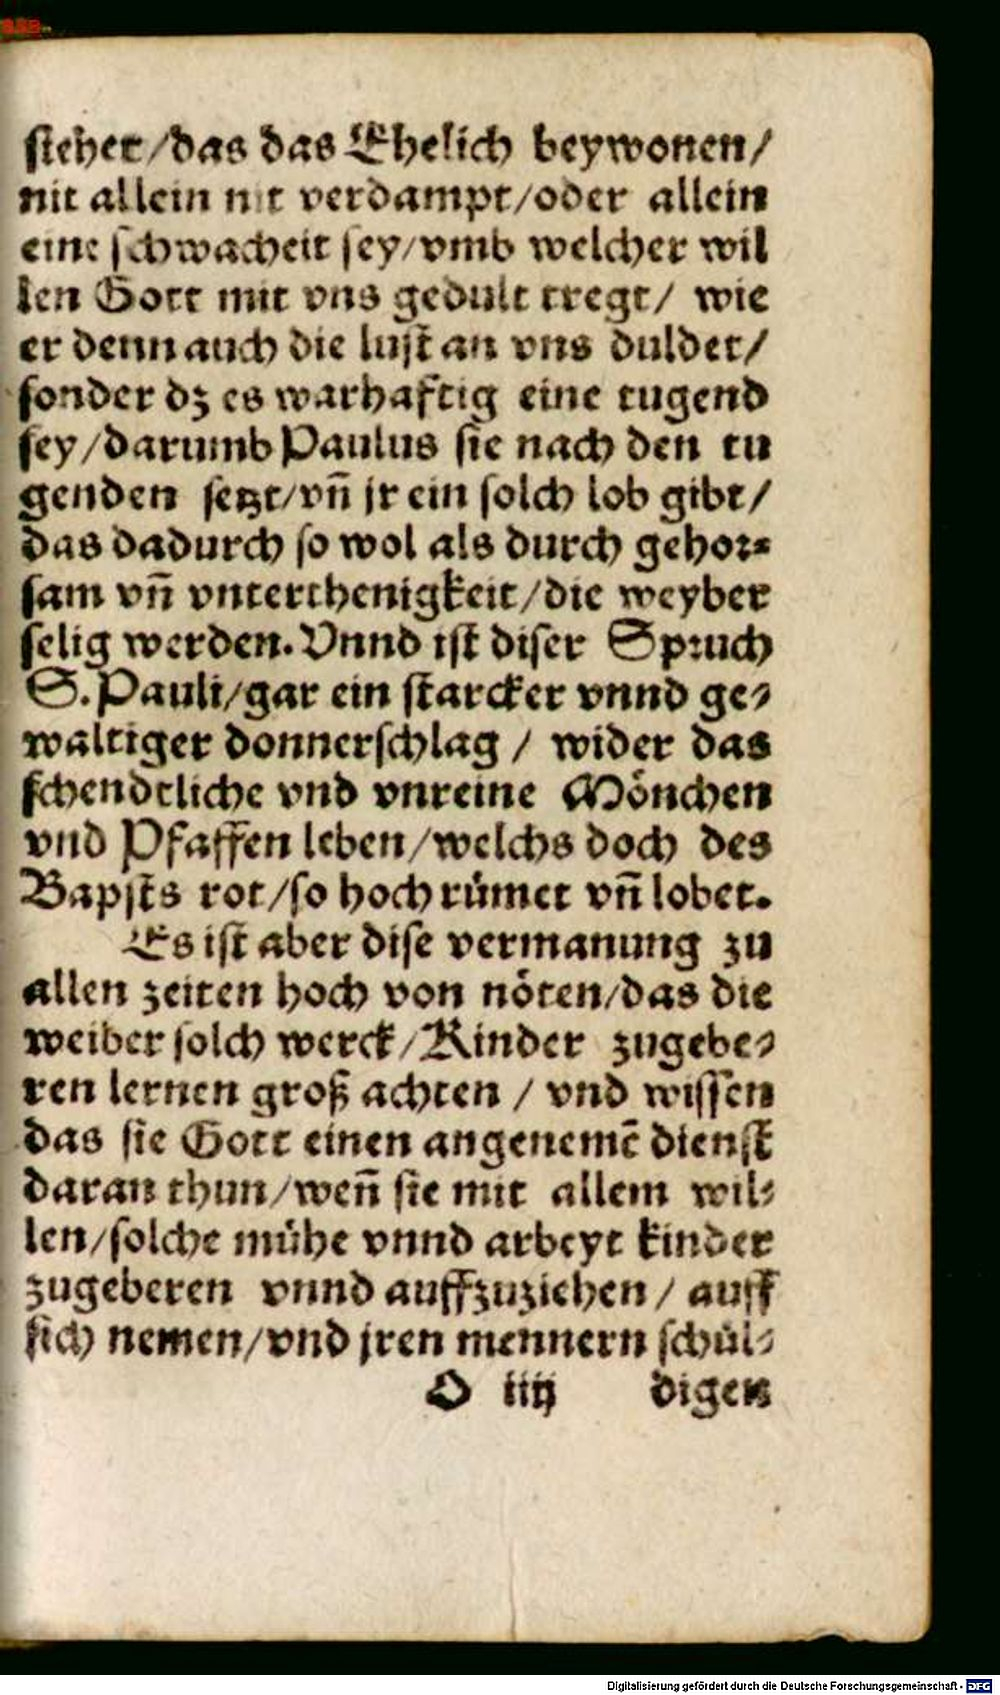 stehet/das das Ehelich beywonen/
nit allein nit verdampt/oder allein
eine schwacheit sey/vmb welcher wil
len Gott mit vns gedult tregt/ wie
er denn auch die lust an vns duldet/
sonder dz es warhaftig eine tugend
sey/darumb Paulus sie nach den tu
genden setzt/vñ jr ein solch lob gibt/
das dadurch so wol als durch gehor=
sam vñ vnterthenigkeit/die weyber
selig werden. Vnnd ist diser Spruch
S. Pauli/gar ein starcker vnnd ge=
waltiger donnerschlag / wider das
schendtliche vnd vnreine Mönchen
vnd Pfaffen leben/welchs doch des
Bapsts rot/so hoch rümet vñ lobet.
Es ist aber dise vermanung zu
allen zeiten hoch von nöten/das die
weiber solch werck/Kinder zugebe=
ren lernen groß achten / vnd wissen
das sie Gott einen angenemē dienst
daran thun/weñ sie mit allem wil=
len/solche mühe vnnd arbeyt kinder
zugeberen vnnd auffzuziehen / auff
sich nemen/vnd jren mennern schül=
O iiij digen
Digitalisierung gefördert durch die Deutsche Forschungsgemeinschaft - DFG